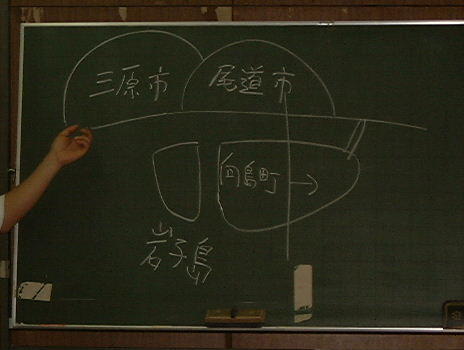 三原市 尾道市
向島町
岩子島